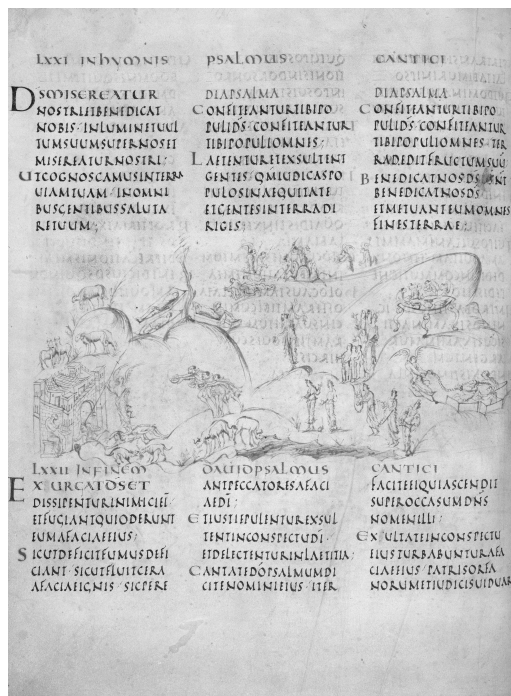 LXXI IN HYMNIS
DS MISEREATUR
NOSTRI ET BENEDICAT
NOBIS INLUMINET UUL
TUM SUUM SUPER NOS ET
MISEREATUR NOSTRI;
UT COGNOSCAMUS IN TERRA
UIAM TUAM IN OMNI
BUS GENTIBUS SALUTA
RE TUUM;
PSALMUS
DIAPSALMA
CONFITEANTUR TIBI PO
PULI DS CONFITEANTUR
TIBI POPULI OMNES
LAETENTUR ET EXSULTENT
GENTES QM IUDICAS PO
PULOS IN AEQUITATE
ET GENTES IN TERRA DI
RIGIS
CANTICI
DIAPSALMA
CONFITEANTUR TIBI PO
PULI DS CONFITEANTUR
TIBI POPULI OMNES TER
RA DEDIT FRUCTUM SUU
BENEDICAT NOS DS
BENEDICAT NOS DS
ET METUANT EUM OMNES
FINES TERRAE
LXXII IN FINEM
EXURGAT DS ET
DISSIPENTUR INIMICI EI
ET FUGIANT QUI ODERUNT
EUM A FACIE EIUS
SICUT DEFICIT FUMUS DEFI
CIANT SICUT FLUIT CERA
A FACIE IGNIS SIC PERE
DAUID PSALMUS
ANT PECCATORES A FACI
AE DI
ET IUSTI EPULENTUR EXSUL
TENT IN CONSPECTU DI
ET DELECTENTUR IN LAETITIA
CANTATE DO PSALMUM DI
CITE NOMINI EIUS ITER
CANTICI
FACITE EI QUI ASCENDIT
SUPER OCCASUM DNS
NOMEN ILLI
EXULTATE IN CONSPECTU
EIUS TURBABUNTUR A FA
CIAE EIUS PATRIS ORFA
NORUM ET IUDICIS UIDUAR